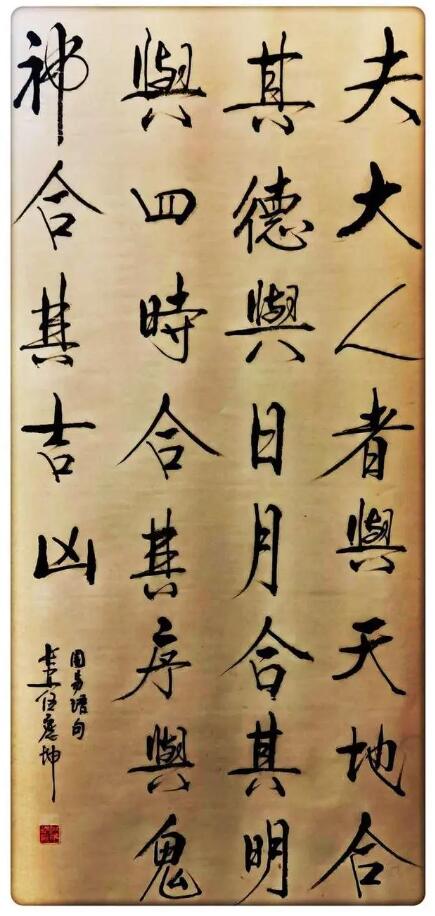 夫大人者與天地合
其德與日月合其明
與四時合其序與鬼
神合其吉凶
周易語句